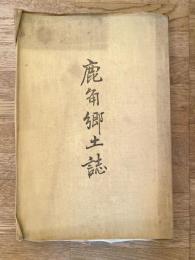 鹿角郷土誌